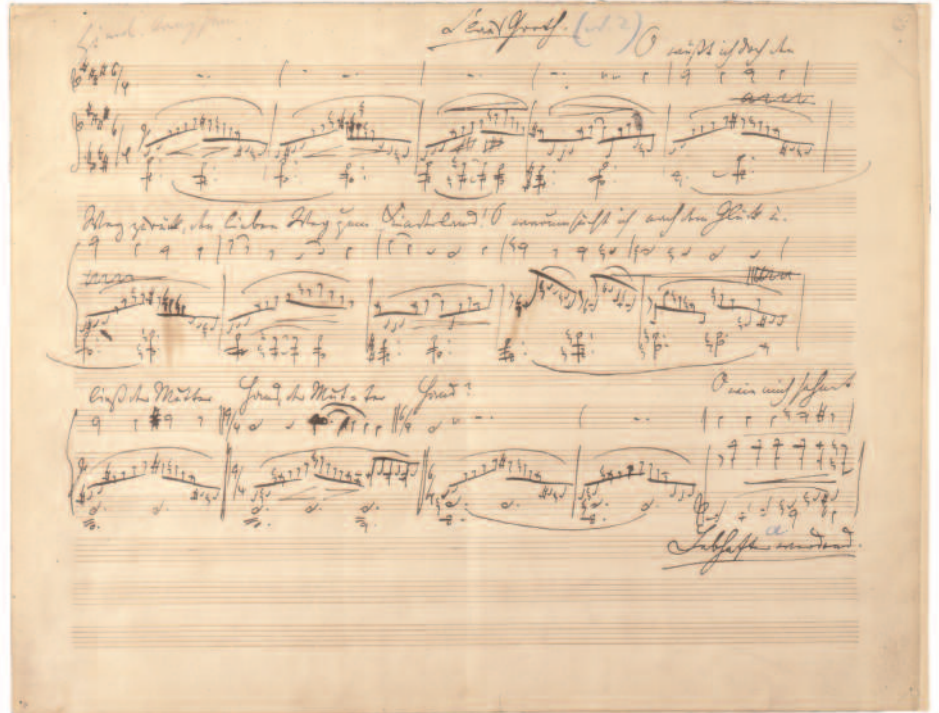 Klaus Groth. (No. 2)
O wüßt ich doch den
Weg zurück, den lieben Weg zum Kinderland! O warum sucht ich nach dem Glück u.
ließ der Mutter Hand, der Mutter Hand?
O wie mich sehnet
Lebhafter werdend.